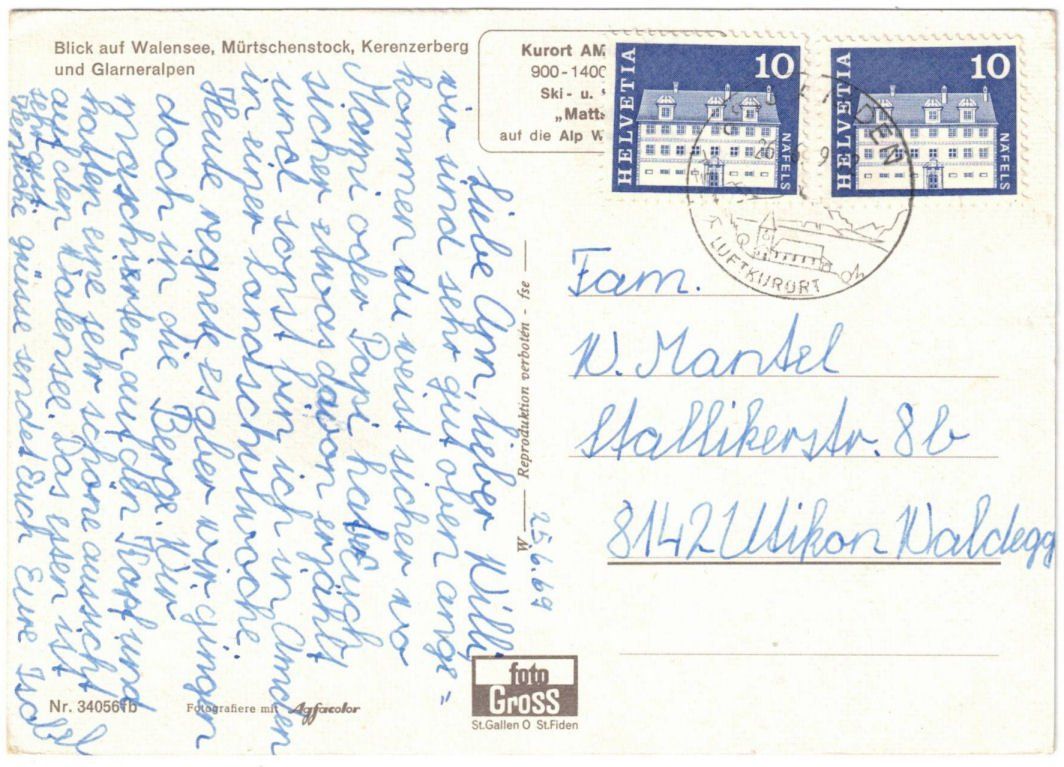 Blick auf Walensee, Mürtschenstock, Kerenzerberg
und Glarneralpen
Kurort AM
900-1400
Ski- u.
„Matts
auf die Alp W
HELVETIA 10 NÄFELS
HELVETIA 10 NÄFELS
DEN
26.6.69
LUFTKURORT
Liebe Ann, lieber Willi
wir sind sehr gut oben ange=
kommen du weist sicher wo
Mammi oder Papi hat Euch
sicher etwas davon erzählt
und sonst bin ich in Amden
in einer Landschulwoche
Heute regnete es aber wir gingen
doch in die Berge. Wir
marschierten auf den Kopf und
hatten eine sehr schöne aussicht
auf den Walensee. Das essen ist
sehr gut
Herzliche grüsse sendet Euch Eure Isabel
25.6.69
W Reproduktion verboten - fse
Fam.
W. Mantel
Stallikerstr. 8b
8142 Utikon Waldegg
foto
Gross
St.Gallen O St.Fiden
Nr. 340561b
Fotografiere mit Agfacolor